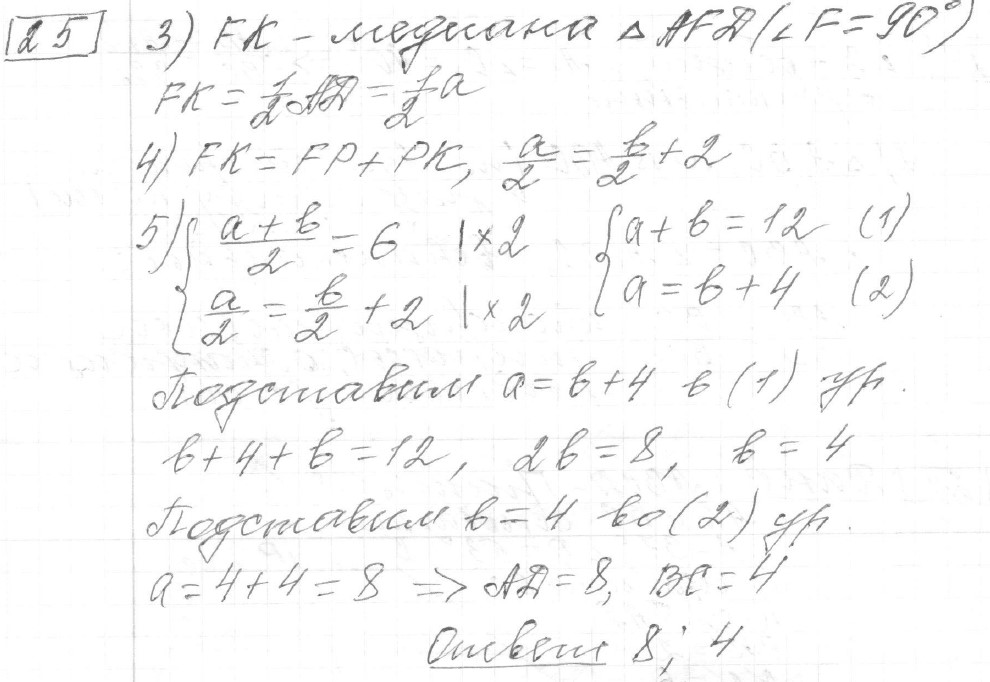 25 3) FK – медиана △ AFD (∠F = 90°)
FK = 1/2 AD = 1/2 a
4) FK = FP + PK, a/2 = b/2 + 2
5) { (a + b)/2 = 6 | × 2 { a + b = 12 (1)
a/2 = b/2 + 2 | × 2 a = b + 4 (2)
Подставим a = b + 4 в (1) ур.
b + 4 + b = 12, 2b = 8, b = 4
Подставим b = 4 во (2) ур.
a = 4 + 4 = 8 => AD = 8, BC = 4
Ответ 8; 4.